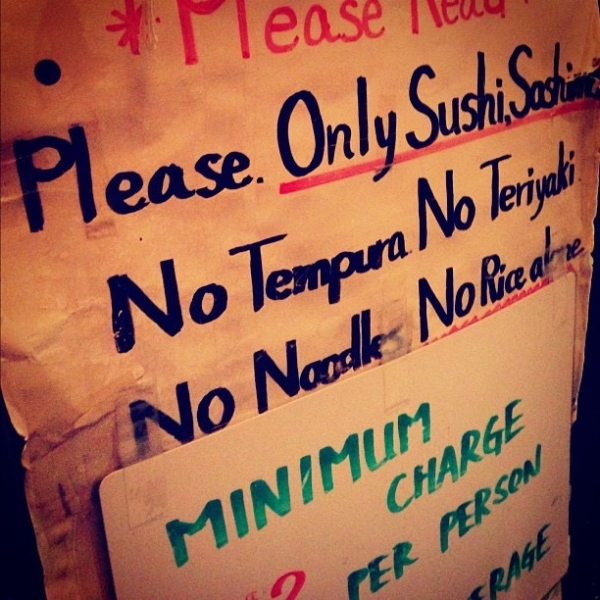 * Please Read
Please. Only Sushi, Sashimi
No Tempura No Teriyaki
No Noodles No Rice alone
MINIMUM
CHARGE
PER PERSON